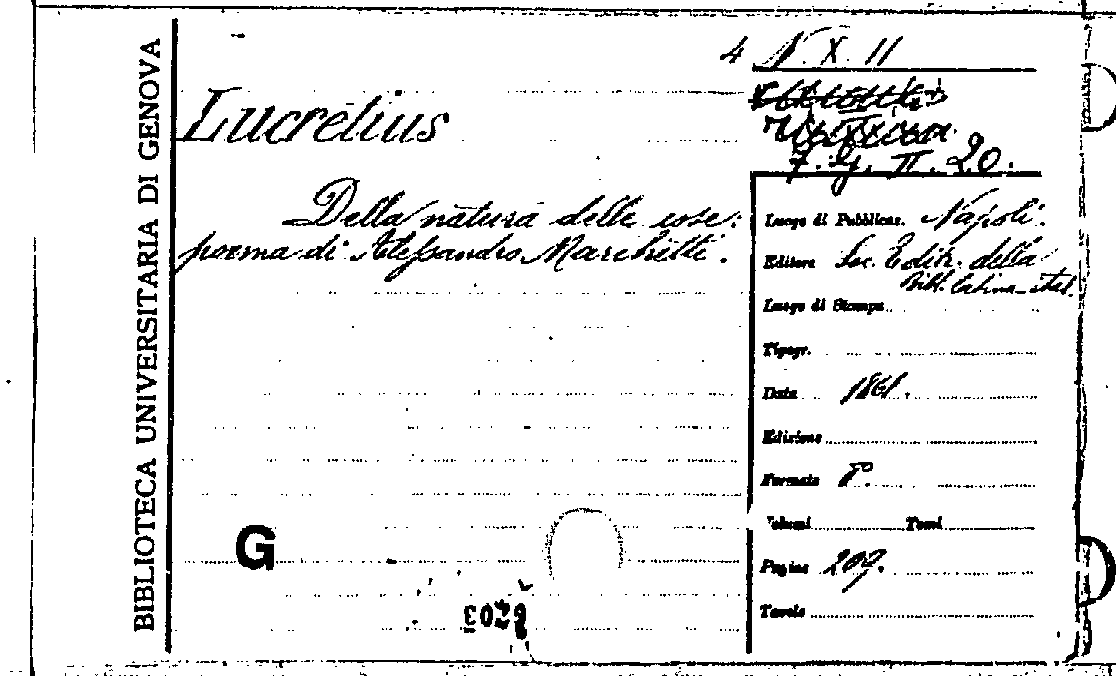 BIBLIOTECA UNIVERSITARIA DI GENOVA
4 N. X. 11
Lucretius
7. G. II. 20.
Della natura delle cose:
poema di Alessandro Marchetti.
Luogo di Pubblicaz. Napoli.
Editore Soc. Editr. della
Bibl. latina-ital.
Luogo di Stampa
Tipogr.
Data 1861.
Edizione
Formato 8°.
Volumi Tomi
Pagine 209.
Tavole
G